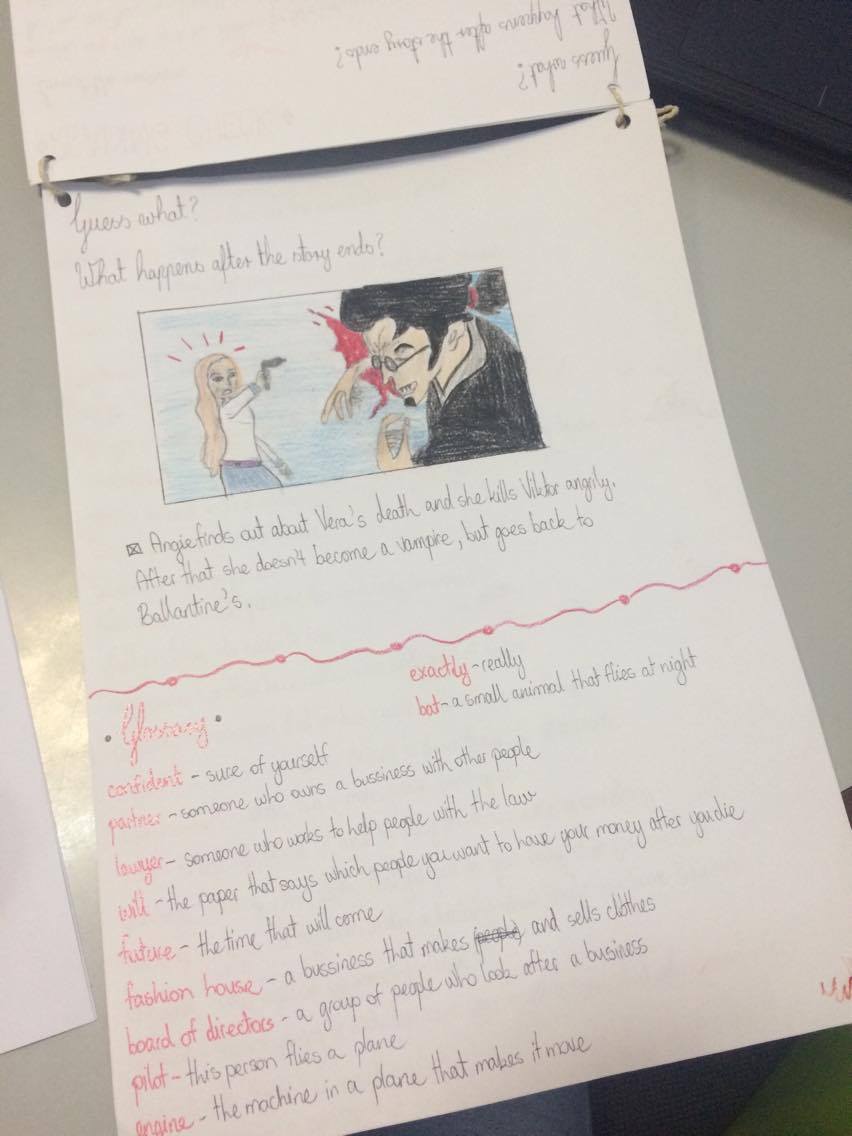 What happens after the story ends?
Guess what?
Guess what?
What happens after the story ends?
Angie finds out about Vera's death and she kills Viktor angrily.
After that she doesn't become a vampire, but goes back to
Ballantine's.
exactly - really
bat - a small animal that flies at night
Glossary
confident - sure of yourself
partner - someone who owns a bussiness with other people
lawyer - someone who works to help people with the law
will - the paper that says which people you want to have your money after you die
future - the time that will come
fashion house - a bussiness that makes (people) and sells clothes
board of directors - a group of people who look after a business
pilot - this person flies a plane
engine - the machine in a plane that makes it move